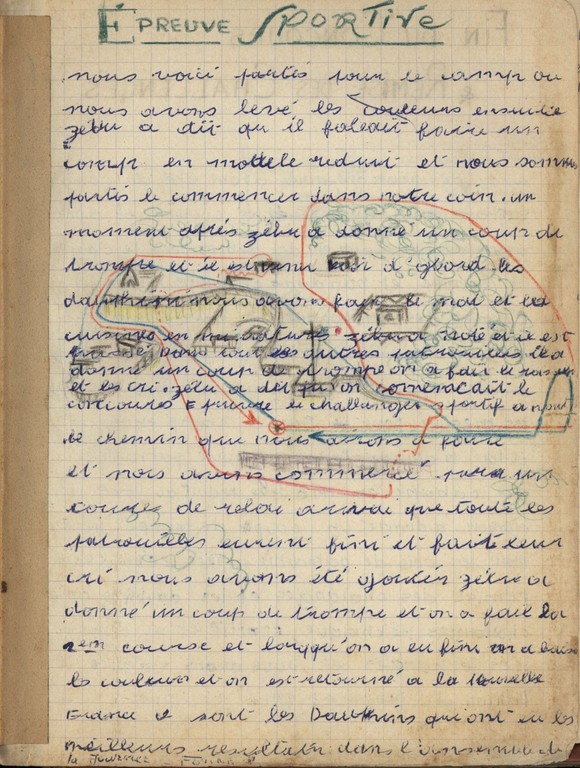 ÉPREUVE SPORTIVE
nous voici partis pour le camp ou
nous avons levé les couleurs ensuite
zébu a dit qu il faleait faire un
camp en modele reduit et nous somm
partis le commencer dans notre coin. un
moment aprés zébu a donné un coup de
trompe et il est venu voir d'abord les
dauphins nous avons fait le mat et les
cuisines en miniature zébu a noté et il est
passé pour tout les autres patrouilles il a
donné un coup de trompe on a fait le rassem
et les cri. zébu a dit qu'on comencait le
concours Epreuve de challenges sportif a
le chemin que nous avons a faire
et nous avons commencé par un
course de relai arrivé que toute les
patrouilles eurent fini et fait leur
cri nous avons été zébu a
donné un coup de trompe et on a fait la
2em course et lorsqu'on a eu fini on a baissé
les couleurs et on est retourné a la Nouvelle
France ce sont les Dauphins qui ont eu les
meilleurs resultats dans l'ensemble de
la journée